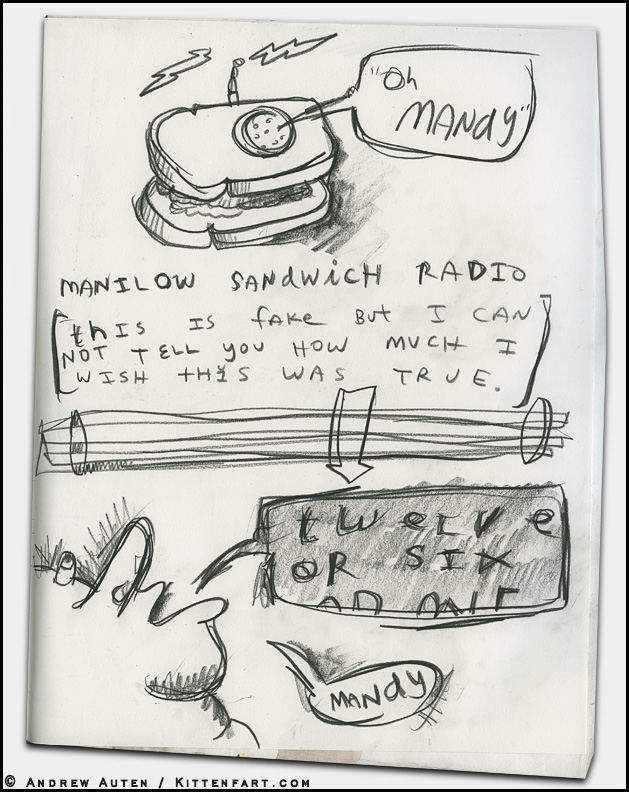 "Oh
MANdy"
MANILOW SANDWiCH RADIO
[thIS IS fAKE BUT I CAN
NOT TELL you HOW MUCH I
WISH THIS WAS TRUE.]
twelve
OR SIX
MANdy
© ANDREW AUTEN / KITTENFART.COM